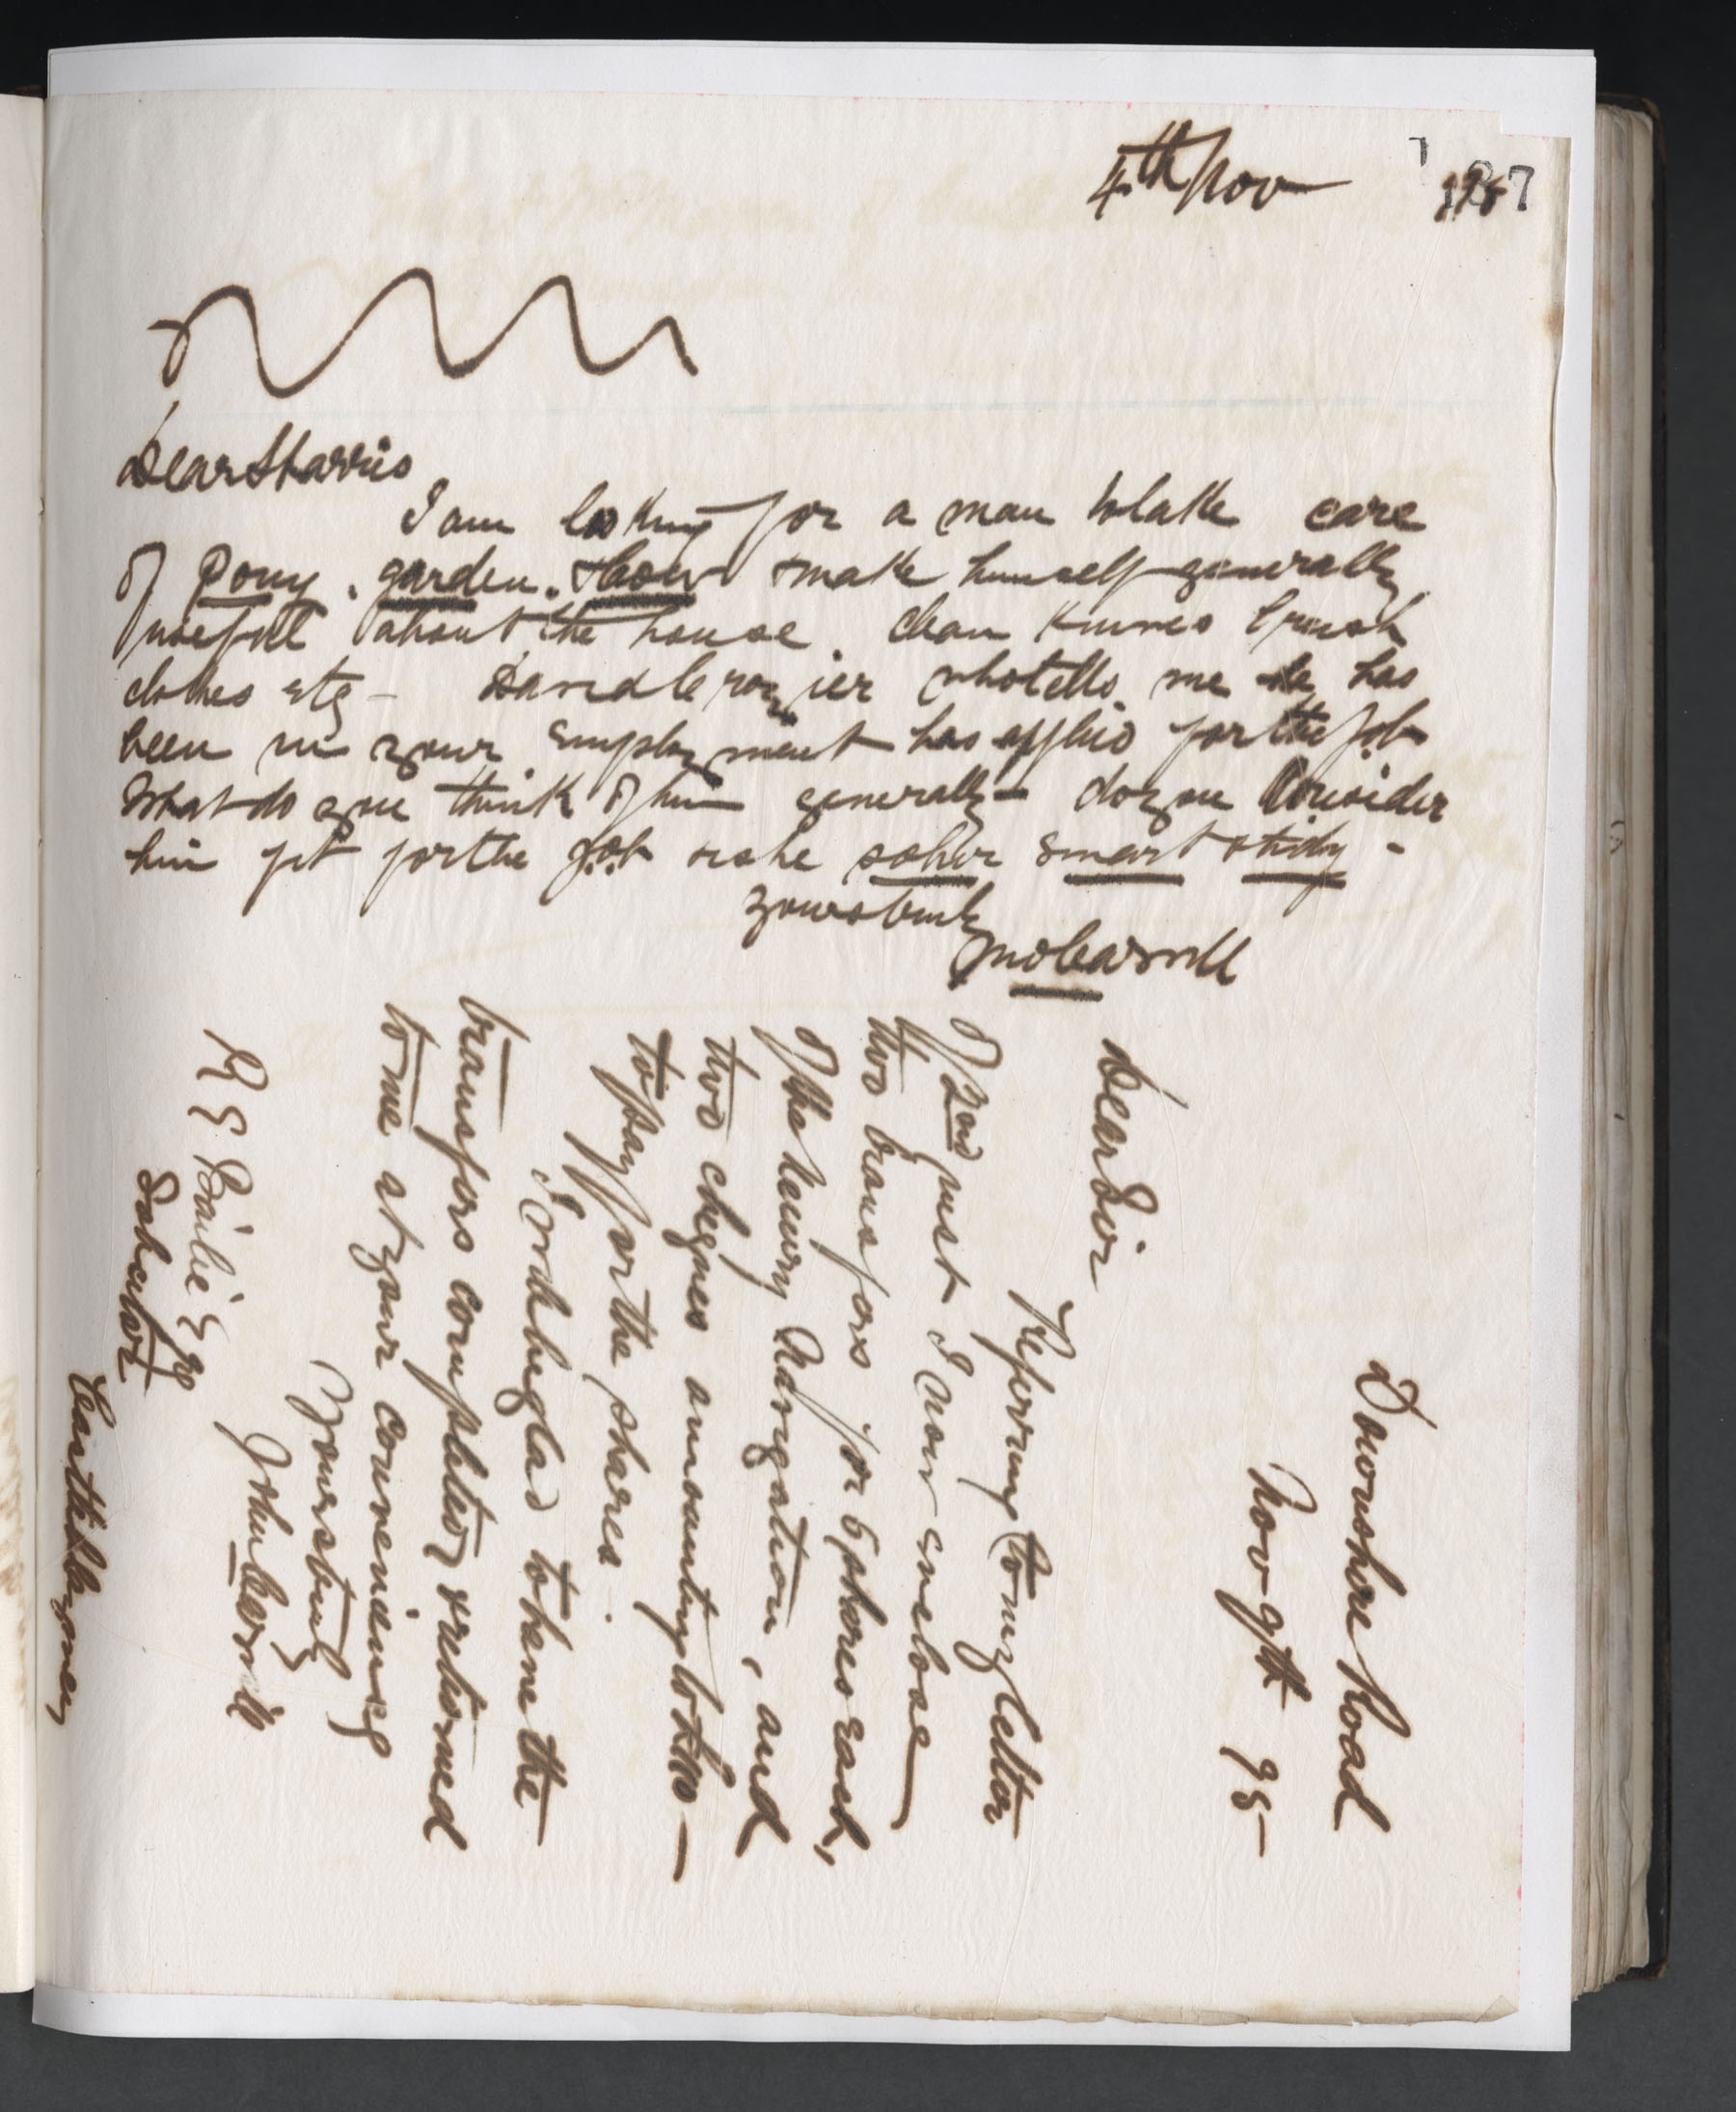 4th Nov
187
Dear Harris
I am looking for a man to take care
of Pony, garden, & cow & make himself generally
useful about the house, clean knives brush
clothes etc - David Crozier who tells me he has
been in your employment has applied for the job
What do you think of him generally - do you consider
him fit for the job is he sober smart & tidy -
Yours truly
Jno Carroll
Downshire Road
Nov 9th 95 -
Dear Sir
Referring to my letter
of 2nd inst I now enclose
two transfers for 5 shares each,
of the Newry Navigation, and
two cheques amounting to
to pay for the shares.
I will be glad to have the
transfers completed & returned
to me at your convenience
Yours truly
John Carroll
Bailie Esq
Solicitor
Castleblayney